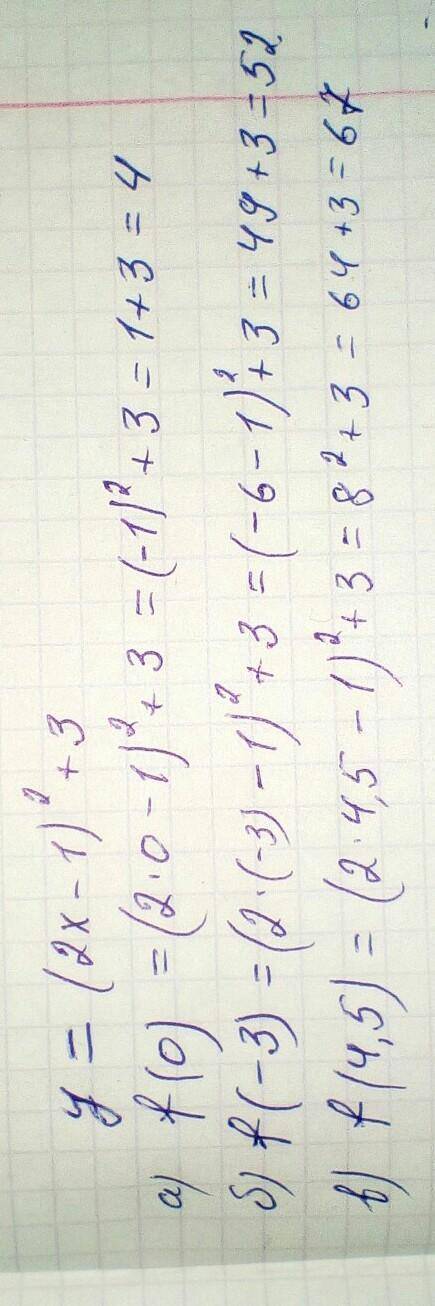 y = (2x - 1)² + 3
а) f(0) = (2·0 - 1)² + 3 = (-1)² + 3 = 1 + 3 = 4
б) f(-3) = (2·(-3) - 1)² + 3 = (-6 - 1)² + 3 = 49 + 3 = 52
в) f(4,5) = (2·4,5 - 1)² + 3 = 8² + 3 = 64 + 3 = 67